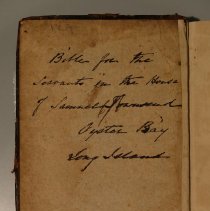 Bible for the
Servants in the House
of Samuel Townsend
Oyster Bay
Long Island